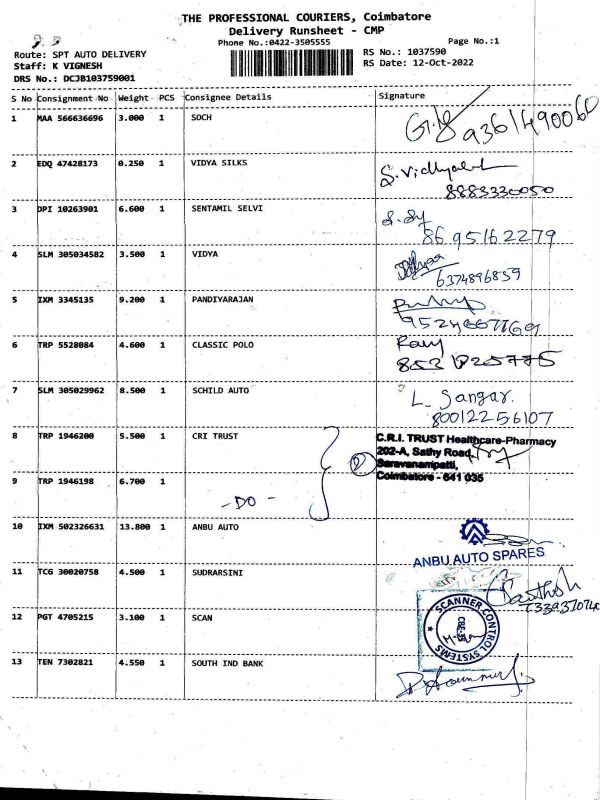 THE PROFESSIONAL COURIERS, Coimbatore
Delivery Runsheet - CMP
Phone No.:0422-3505555 Page No.:1
Route: SPT AUTO DELIVERY RS No.: 1037590
Staff: K VIGNESH RS Date: 12-Oct-2022
DRS No.: DCJB103759001
S No Consignment No Weight PCS Consignee Details Signature
1 MAA 566636696 3.000 1 SOCH 9361490060
2 EDQ 47428173 0.250 1 VIDYA SILKS S. Vidhya
8883330050
3 DPI 10263901 6.600 1 SENTAMIL SELVI
86 95162279
4 SLM 305034582 3.500 1 VIDYA
6374896859
5 IXM 3345135 9.200 1 PANDIYARAJAN
6 TRP 5528084 4.600 1 CLASSIC POLO
7 SLM 305029962 8.500 1 SCHILD AUTO L. Sangar.
800122 56107
8 TRP 1946200 5.500 1 CRI TRUST C.R.I. TRUST Healthcare-Pharmacy
202-A, Sathy Road,
Saravanampatti,
Coimbatore - 641 035
9 TRP 1946198 6.700 1
- DO -
10 IXM 502326631 13.800 1 ANBU AUTO
ANBU AUTO SPARES
11 TCG 30020758 4.500 1 SUDRARSINI
12 PGT 4705215 3.100 1 SCAN SCANNER CONTROL SYSTEMS
CBE-35
13 TEN 7302821 4.550 1 SOUTH IND BANK